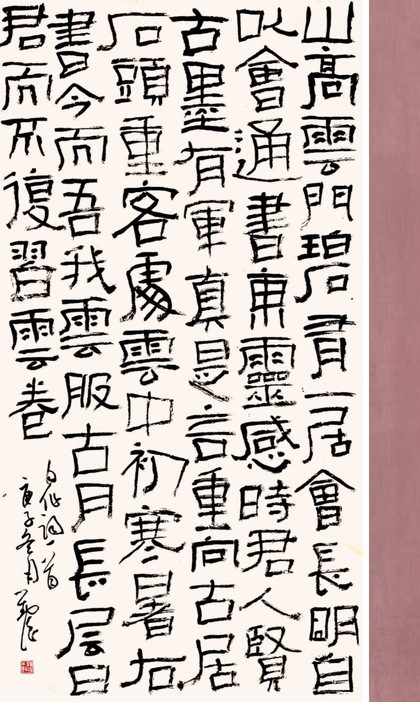 山高雲門碧一居會長明自
以會通書東靈感時君人賢
古墨有軍真是言重向古居
石頭重客處雲中初寒暑右
書今而吾我雲服古月長层日
君而不復習雲卷
自作詞一首
庚子冬月